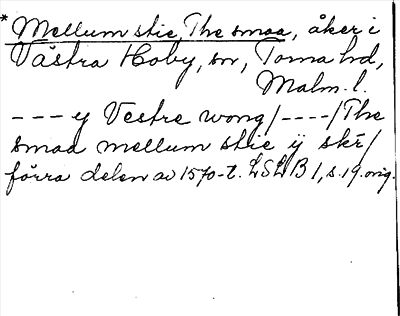 *Mellum stie, The smaa, åker i
Västra Hoby, sn, Torna hd,
Malm. l.
--- y Vestre wong/----/The
smaa mellum stie ij skr/
förra delen av 1570-t. LSLB 1, s. 19. orig.